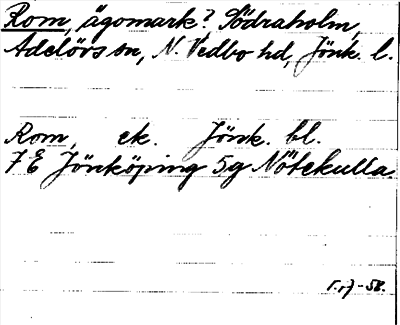 Rom, ägomark? Södraholm,
Adelövs sn, N. Vedbo hd, Jönk. l.
Rom, ek. Jönk. bl.
7 E Jönköping 5g Nötekulla